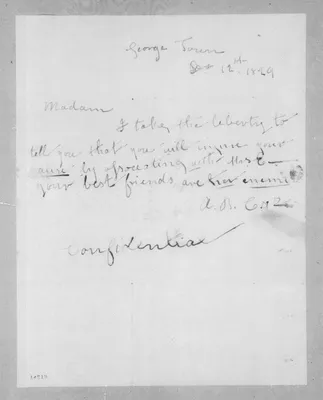 George Town
12th. 1829
Madam
I take the liberty to
tell you that you will injure your
cause by associating with Mrs E—
your best friends are her enemies
A. B. C. &c
Confidential